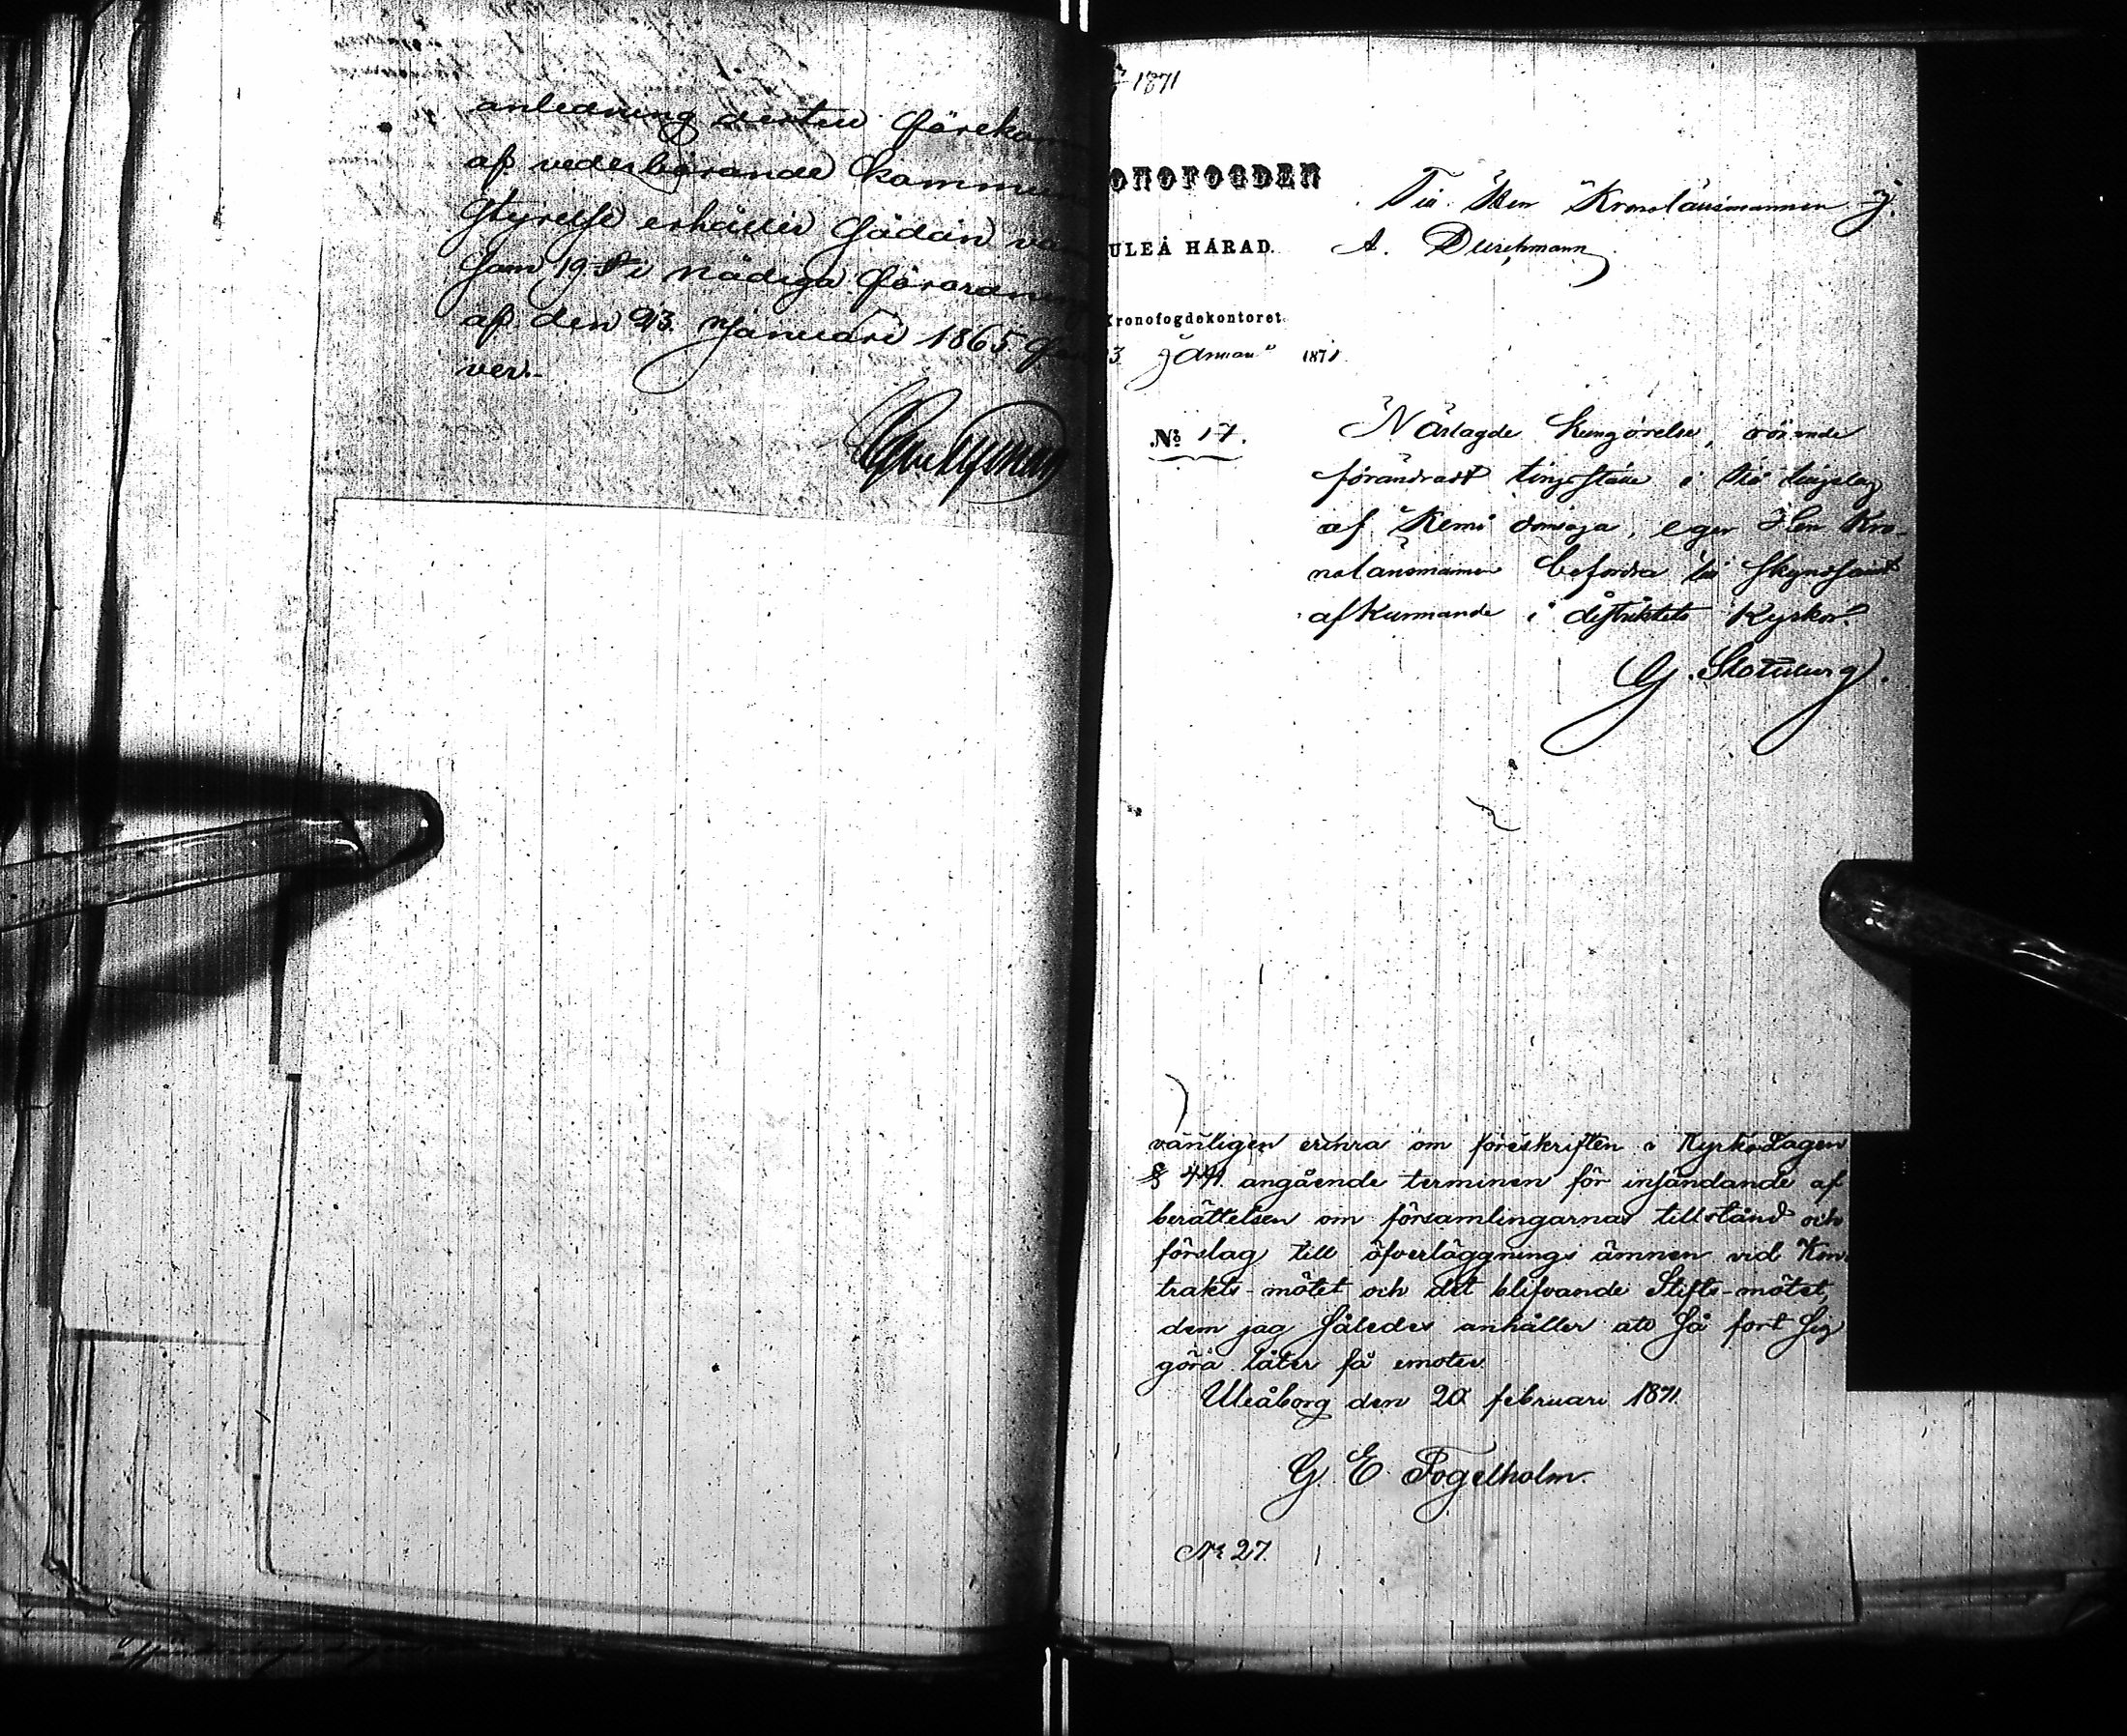 anledning dertill förekom
af vederbörande Kommu
styrelse erhåller sådan
som 19 § i Nådiga förordn
af den 23 Januari 1865
ver.-
1871
ONOFOGDEN
ULEÅ HÄRAD.
Kronofogdekontoret
3 Januari 1871
Till Herr Kronolänsmannen J.
A. Durchmann
№ 17.
Närlagde Kungörelse, rörande
förändradt tingsställe i tingslag
af Kemi domsaga, eger Herr Kro-
nolänsmannen befordra till skyndsamt
afkunnande i distriktets Kyrkor.
vänligen erinra om föreskriften i KyrkoLagen
§ 441 angående terminen för insändande af
berättelsen om församlingarnas tillstånd och
förslag till öfverläggnings ämnen vid Kon-
trakts-mötet och det blifvande Stifts-mötet,
dem jag således anhåller att så fort sig
göra låter få emotse.
Uleåborg den 20 februari 1871.
G. E. Fogelholm.
№ 27.